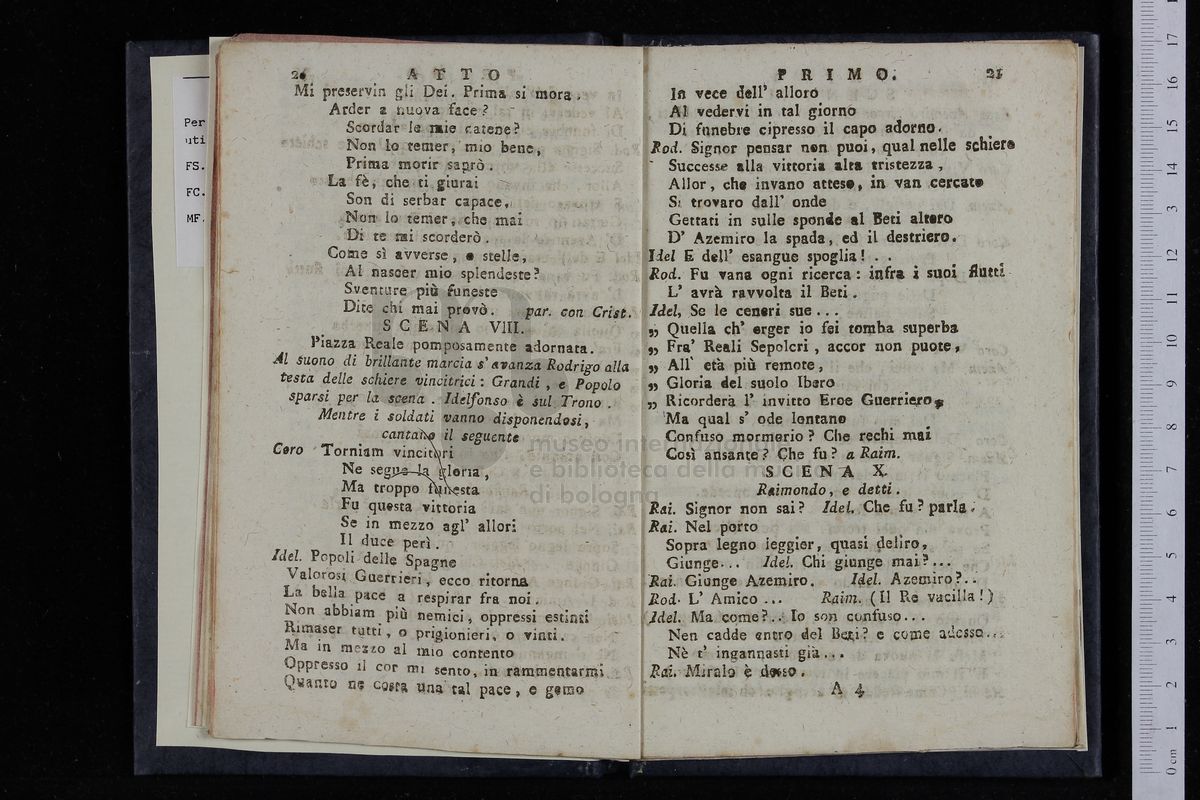 Per
uti
FS.
FC.
MF.
2
ATTO
Mi preservin gli Dei. Prima si mora.
Arder a nuova face?
Scordar le mie catene?
Non lo temer, mio bene,
Prima morir saprò.
La fè, che ti giurai
Son di serbar capace,
Non lo temer, che mai
Di te mi scorderò.
Come sì avverse, o stelle,
Al nascer mio splendeste?
Sventure più funeste
Dite chi mai provò. par. con Crist.
SCENA VIII.
Piazza Reale pomposamente adornata.
Al suono di brillante marcia s' avanza Rodrigo alla
testa delle schiere vincitrici: Grandi, e Popolo
sparsi per la scena. Idelfonso è sul Trono.
Mentre i soldati vanno disponendosi,
cantano il seguente
Coro Torniam vincitori
Ne segue la gloria,
Ma troppo funesta
Fu questa vittoria
Se in mezzo agl' allori
Il duce perì.
Idel. Popoli delle Spagne
Valorosi Guerrieri, ecco ritorna
La bella pace a respirar fra noi.
Non abbiam più nemici, oppressi estinti
Rimaser tutti, o prigionieri, o vinti.
Ma in mezzo al mio contento
Oppresso il cor mi sento, in rammentarmi
Quanto ne costa una tal pace, e gemo
PRIMO. 21
In vece dell' alloro
Al vedervi in tal giorno
Di funebre cipresso il capo adorno.
Rod. Signor pensar non puoi, qual nelle schiere
Successe alla vittoria alta tristezza,
Allor, che invano atteso, in van cercato
Si trovaro dall' onde
Gettati in sulle sponde al Beti altero
D' Azemiro la spada, ed il destriero.
Idel E dell' esangue spoglia! . .
Rod. Fu vana ogni ricerca: infra i suoi flutti
L' avrà ravvolta il Beti.
Idel, Se le ceneri sue...
„ Quella ch' erger io fei tomba superba
„ Fra' Reali Sepolcri, accor non puote,
„ All' età più remote,
„ Gloria del suolo Ibero
„ Ricorderà l' invitto Eroe Guerriero,
Ma qual s' ode lontano
Confuso mormorio? Che rechi mai
Così ansante? Che fu? a Raim.
SCENA X.
Raimondo, e detti.
Rai. Signor non sai? Idel. Che fu? parla.
Rai. Nel porto
Sopra legno leggier, quasi deliro,
Giunge... Idel. Chi giunge mai?...
Rai. Giunge Azemiro. Idel. Azemiro?..
Rod. L' Amico ... Raim. (Il Re vacilla!)
Idel. Ma come?.. Io son confuso...
Non cadde entro del Beti? e come adesso...
Nè t' ingannasti già...
Rai. Miralo è desso.
A 4
museo internazionale
e biblioteca della musica
di bologna
0 cm 1 2 3 4 5 6 7 8 9 10 11 12 13 14 15 16 17